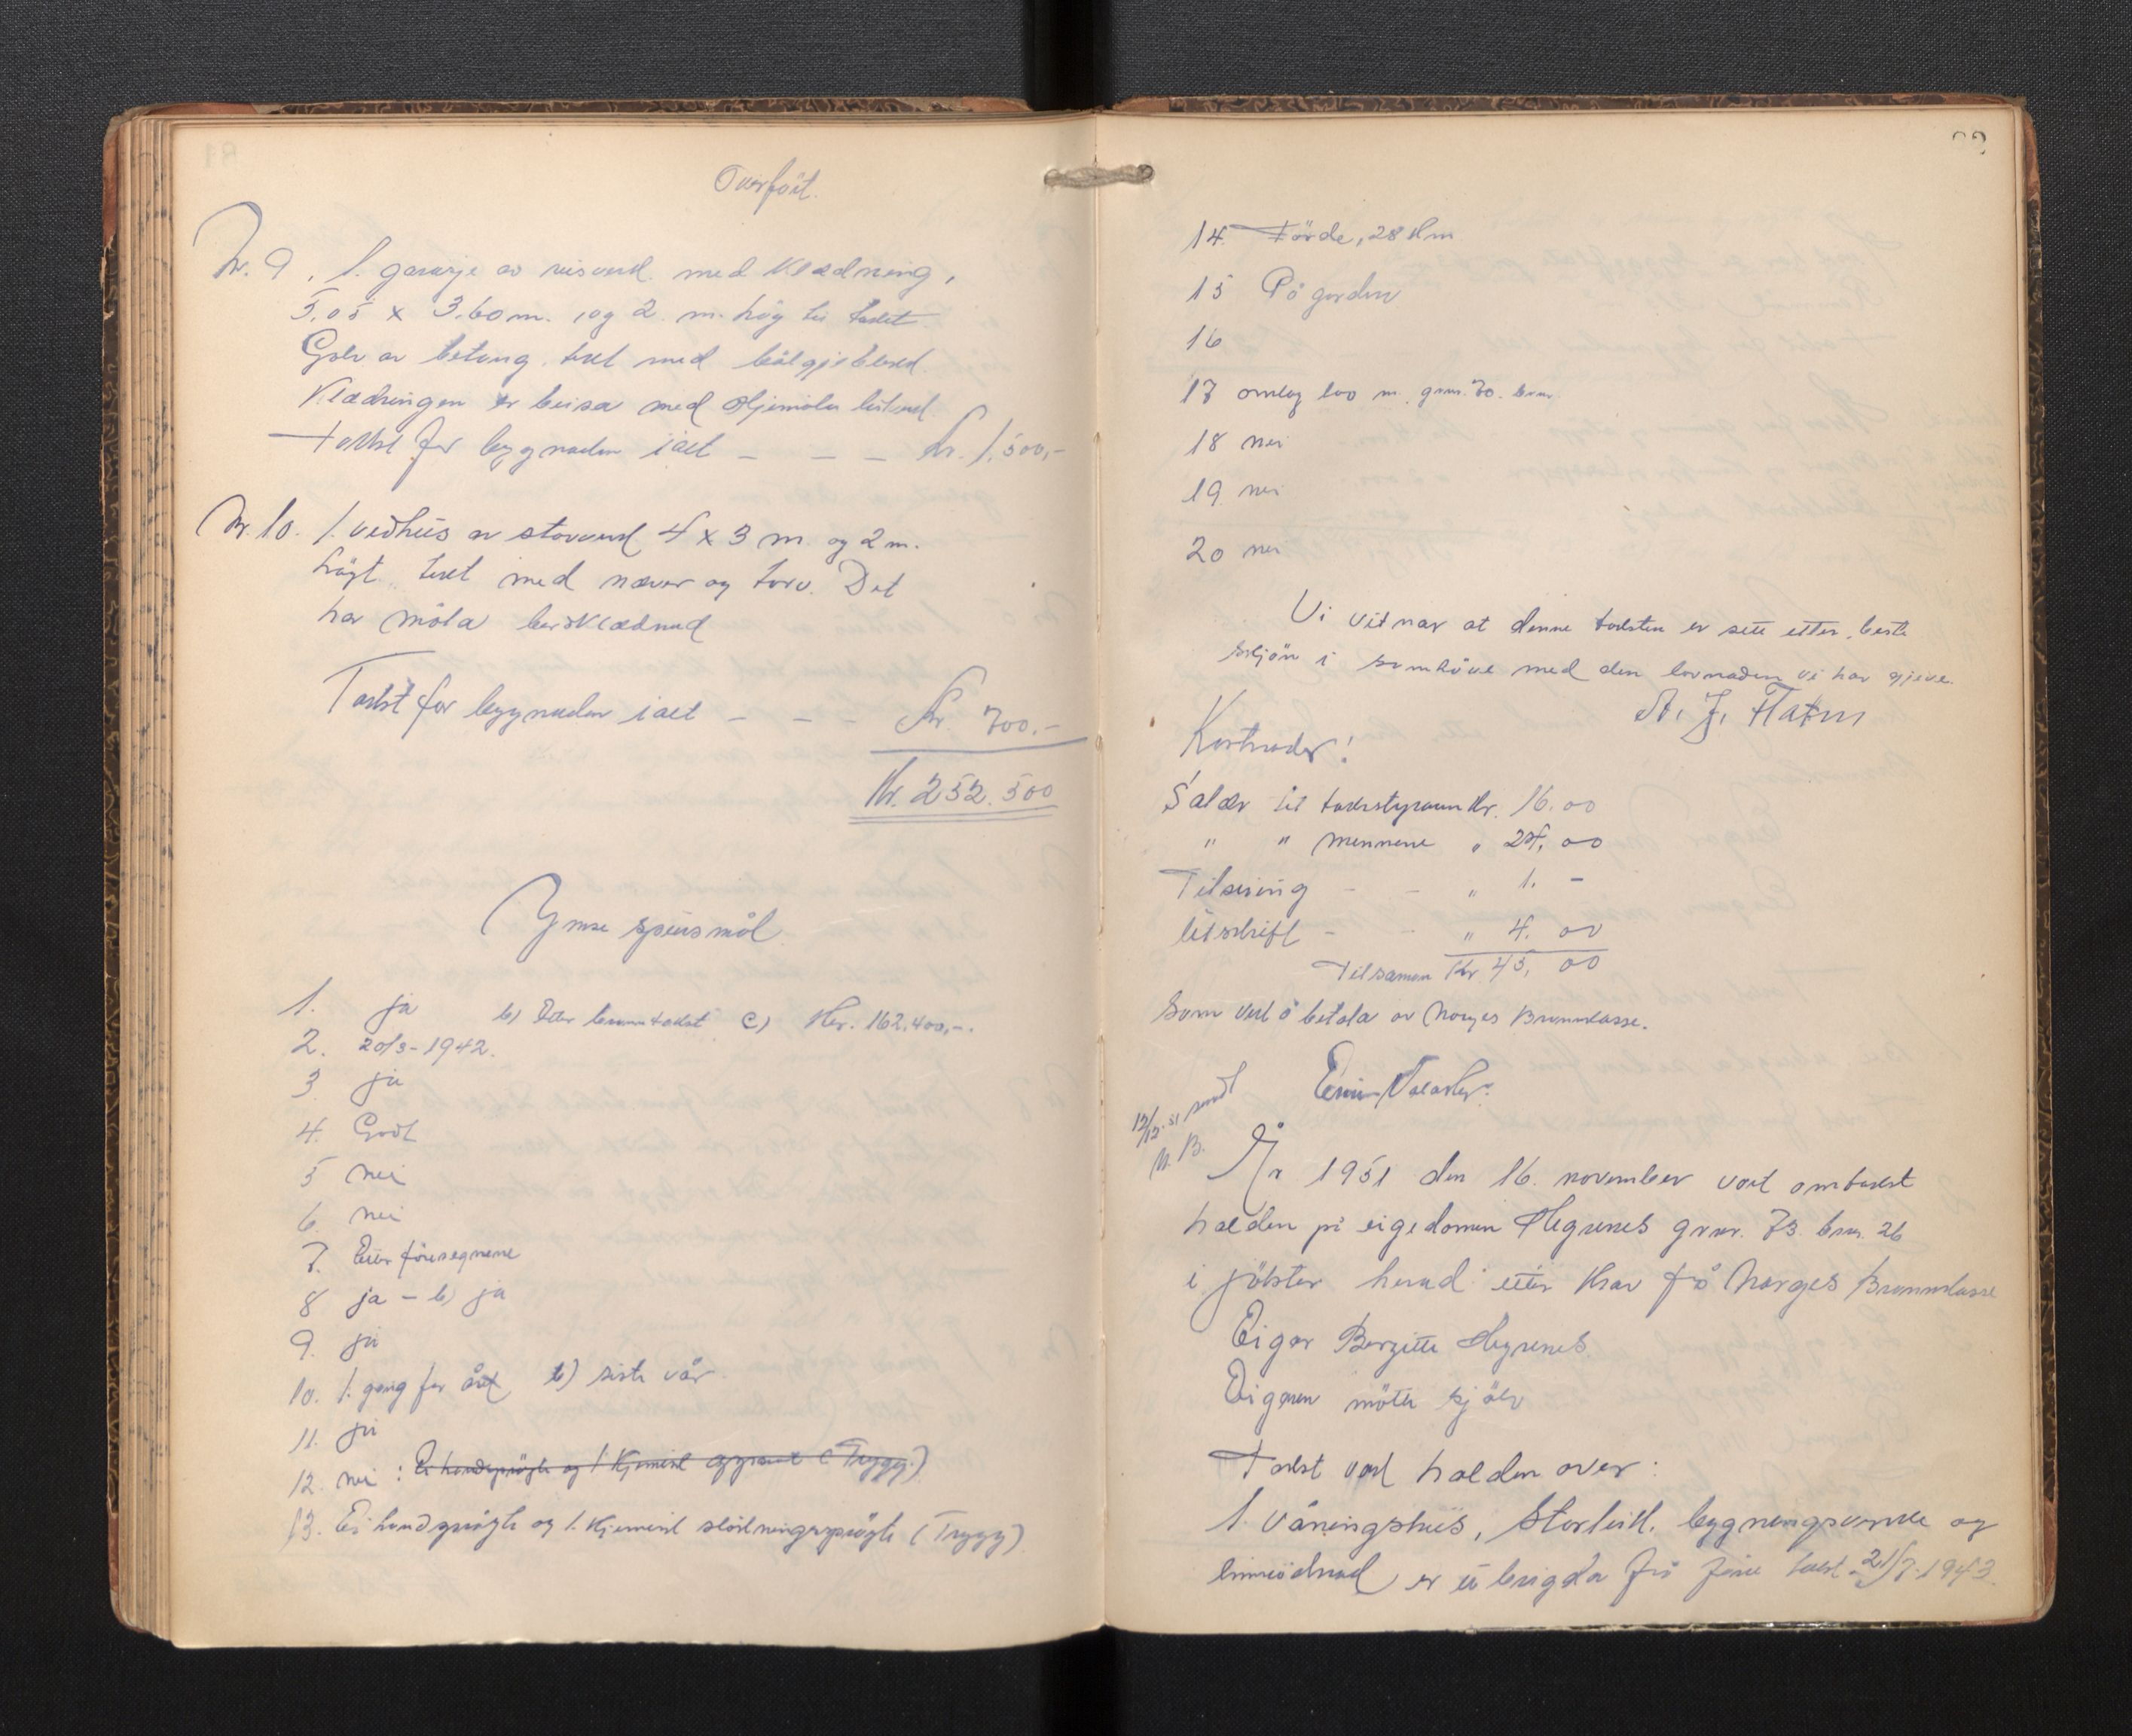 Overført.
Nr. 9. 1. garasje av reisverk med klædning,
5.05 x 3.60 m. og 2 m. høg til taket.
Golv av betong, tekt med bølgjeblekk.
Klædningen er beisa med
Takst for bygnaden ialt - - - Kr. 1.500,-
Nr. 10. 1. vedhus av stavverk 4 x 3 m. og 2 m.
høgt. tekt med næver og torv. Det
har måla bordklædnad
Takst for bygnaden ialt - - - Kr. 700.-
Kr. 252.500
Ymse spursmål
1. ja b) Etter branntakst c) Kr. 162.400,-.
2. 20/3-1942.
3. ja
4. Godt
5 nei
6. nei
7. Etter føresegnene
8 ja - b) ja
9. ja
10. 1. gong for året b) siste vår
11. ja
12. nei : Ei handsprøyte og 1 kjemisk apparat (Trygg.)
13. Ei handsprøyte og 1. kjemisk slökningssprøyte (Trygg)
14. Förde, 28 km
15 På garden
16
17 omlag 100 m. gnr. 70. bnr
18 nei
19 nei
20 nei
Vi vitnar at denne taksten er sett etter beste
skjön i samhöve med den lovnaden vi har gjeve.
A. J. Flaten
Kostnader!
Salær til takststyraren Kr. 16.00
" " mennene " 24,00
Tilseiing - - " 1. -
Utskrift - - " 4. 00
Tilsamen Kr 45,00
som vert å betala av Norges Brannkasse.
12/12.51 sendt
N. B.
År 1951 den 16. november vart omtakst
halden på eigedomen Hegrenes gnr. 73 bnr. 26
i jölster herad etter krav frå Norges Brannkasse
Eigar Bergitte Hegrenes
Eigaren mötte sjölv
Takst vart halden over:
1. Våningshus, Storleik. bygningsverke og
innreidnad er ubrigda frå förre takst 21/7-1943.